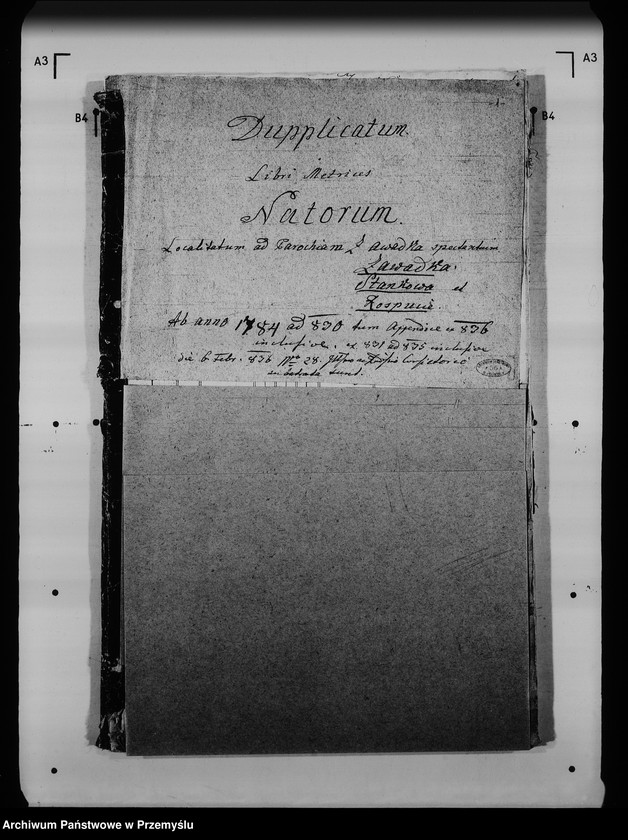 A3
A3
B4
B4
-1-
Dupplicatum.
Libri Metrices
Natorum.
Localitatum ad Parochiam Ławadka spectantium
Ławadka.
Stankowa et
Rospucie.
Ab anno 1784 ad 830 tum Appendice ex 836
inclusive. ex 831 ad 835 inclusive
die 6 Febr. 836 Nro 28.
sunt.
Archiwum Państwowe w Przemyślu